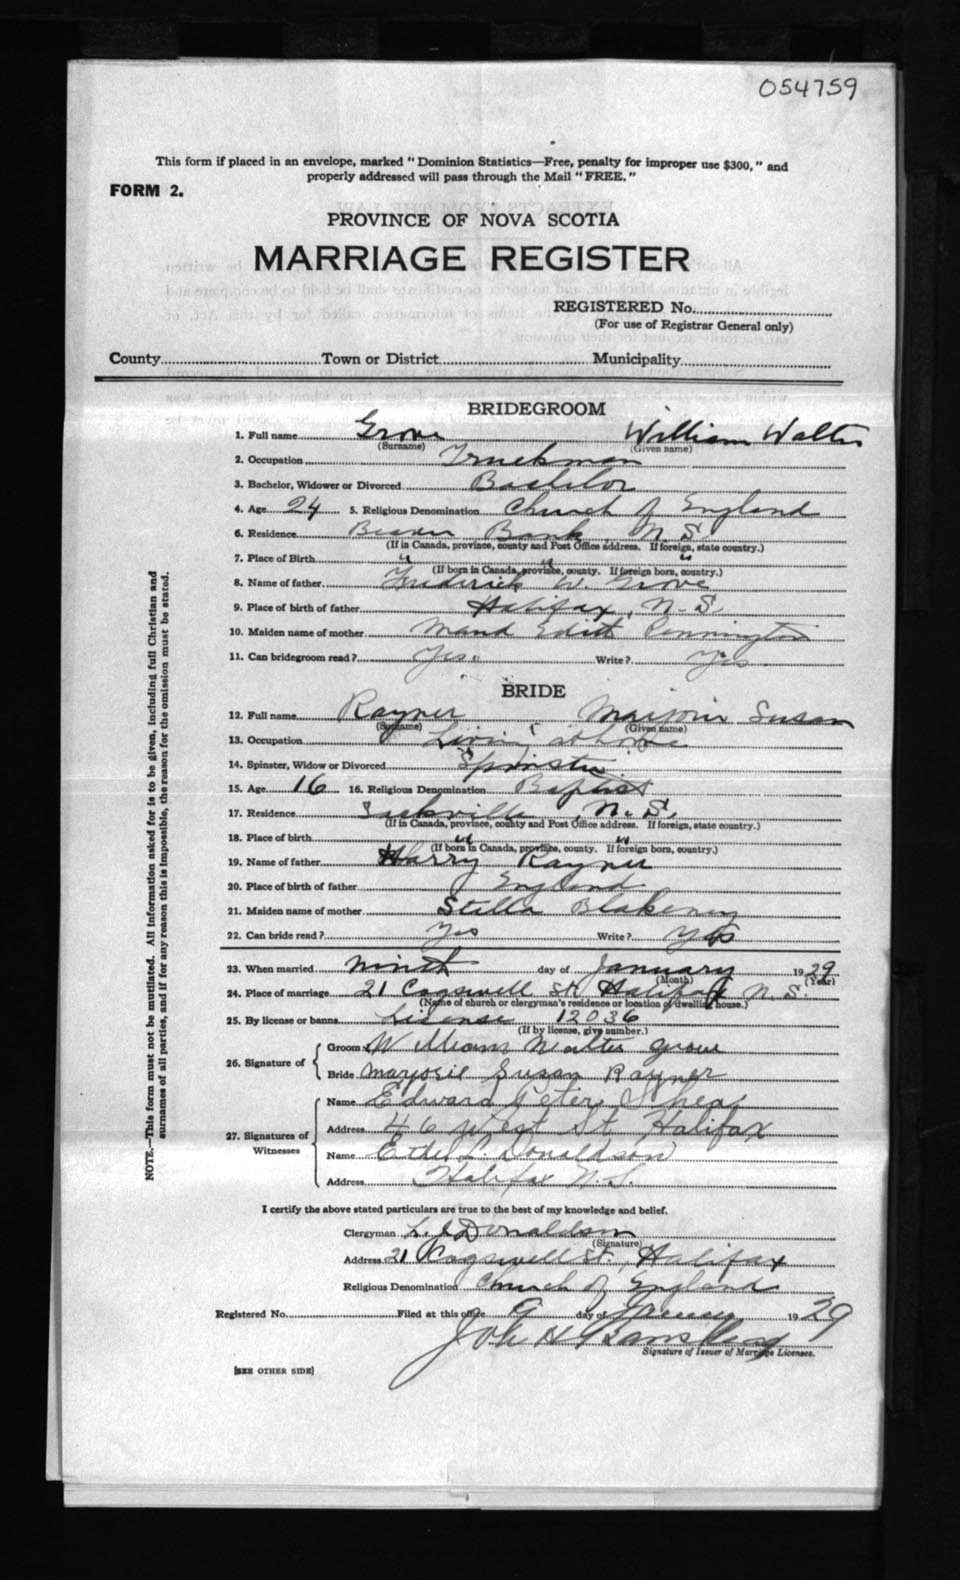 054759
This form if placed in an envelope, marked "Dominion Statistics—Free, penalty for improper use $300," and
properly addressed will pass through the Mail "FREE."
FORM 2.
PROVINCE OF NOVA SCOTIA
MARRIAGE REGISTER
REGISTERED No.
(For use of Registrar General only)
County Town or District Municipality
BRIDEGROOM
1. Full name Grove William Walter
(Surname) (Given name)
2. Occupation Truckman
3. Bachelor, Widower or Divorced Bachelor
4. Age 24 5. Religious Denomination Church of England
6. Residence Beaver Bank, N.S.
(If in Canada, province, county and Post Office address. If foreign, state country.)
7. Place of Birth " " "
(If born in Canada, province, county. If foreign born, country.)
8. Name of father Frederick W. Grove
9. Place of birth of father Halifax, N.S.
10. Maiden name of mother Maud Edith Pennington
11. Can bridegroom read? Yes. Write? Yes
BRIDE
12. Full name Rayner Marjorie Susan
(Surname) (Given name)
13. Occupation Living at home
14. Spinster, Widow or Divorced Spinster
15. Age 16 16. Religious Denomination Baptist
17. Residence Sackville, N.S.
(If in Canada, province, county and Post Office address. If foreign, state country.)
18. Place of birth " "
(If born in Canada, province, county. If foreign born, country.)
19. Name of father Harry Rayner
20. Place of birth of father England
21. Maiden name of mother Stella Blakeney
22. Can bride read? Yes Write? Yes
23. When married Ninth day of January 1929
(Month) (Year)
24. Place of marriage 21 Cogswell St. Halifax N.S.
(Name of church or clergyman's residence or location of dwelling house.)
25. By license or banns License 12036
(If by license, give number.)
26. Signature of Groom William Walter Grove
Bride Marjorie Susan Rayner
27. Signatures of Witnesses
Name Edward Peter Shea
Address 46 West St. Halifax
Name Ethel L. Donaldson
Address Halifax N.S.
I certify the above stated particulars are true to the best of my knowledge and belief.
Clergyman L. J. Donaldson
(Signature)
Address 21 Cogswell St., Halifax
Religious Denomination Church of England
Registered No. Filed at this office 9 day of January 1929
Signature of Issuer of Marriage Licenses.
[SEE OTHER SIDE]
NOTE.—This form must not be mutilated. All information asked for is to be given, including full Christian and
surnames of all parties, and if for any reason this is impossible, the reason for the omission must be stated.